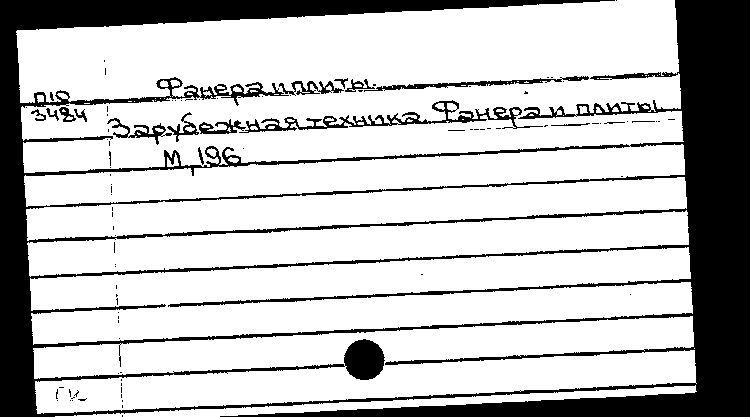 Фанера и плиты.
П10
3484
Зарубежная техника. Фанера и плиты.
М, 196
ГК